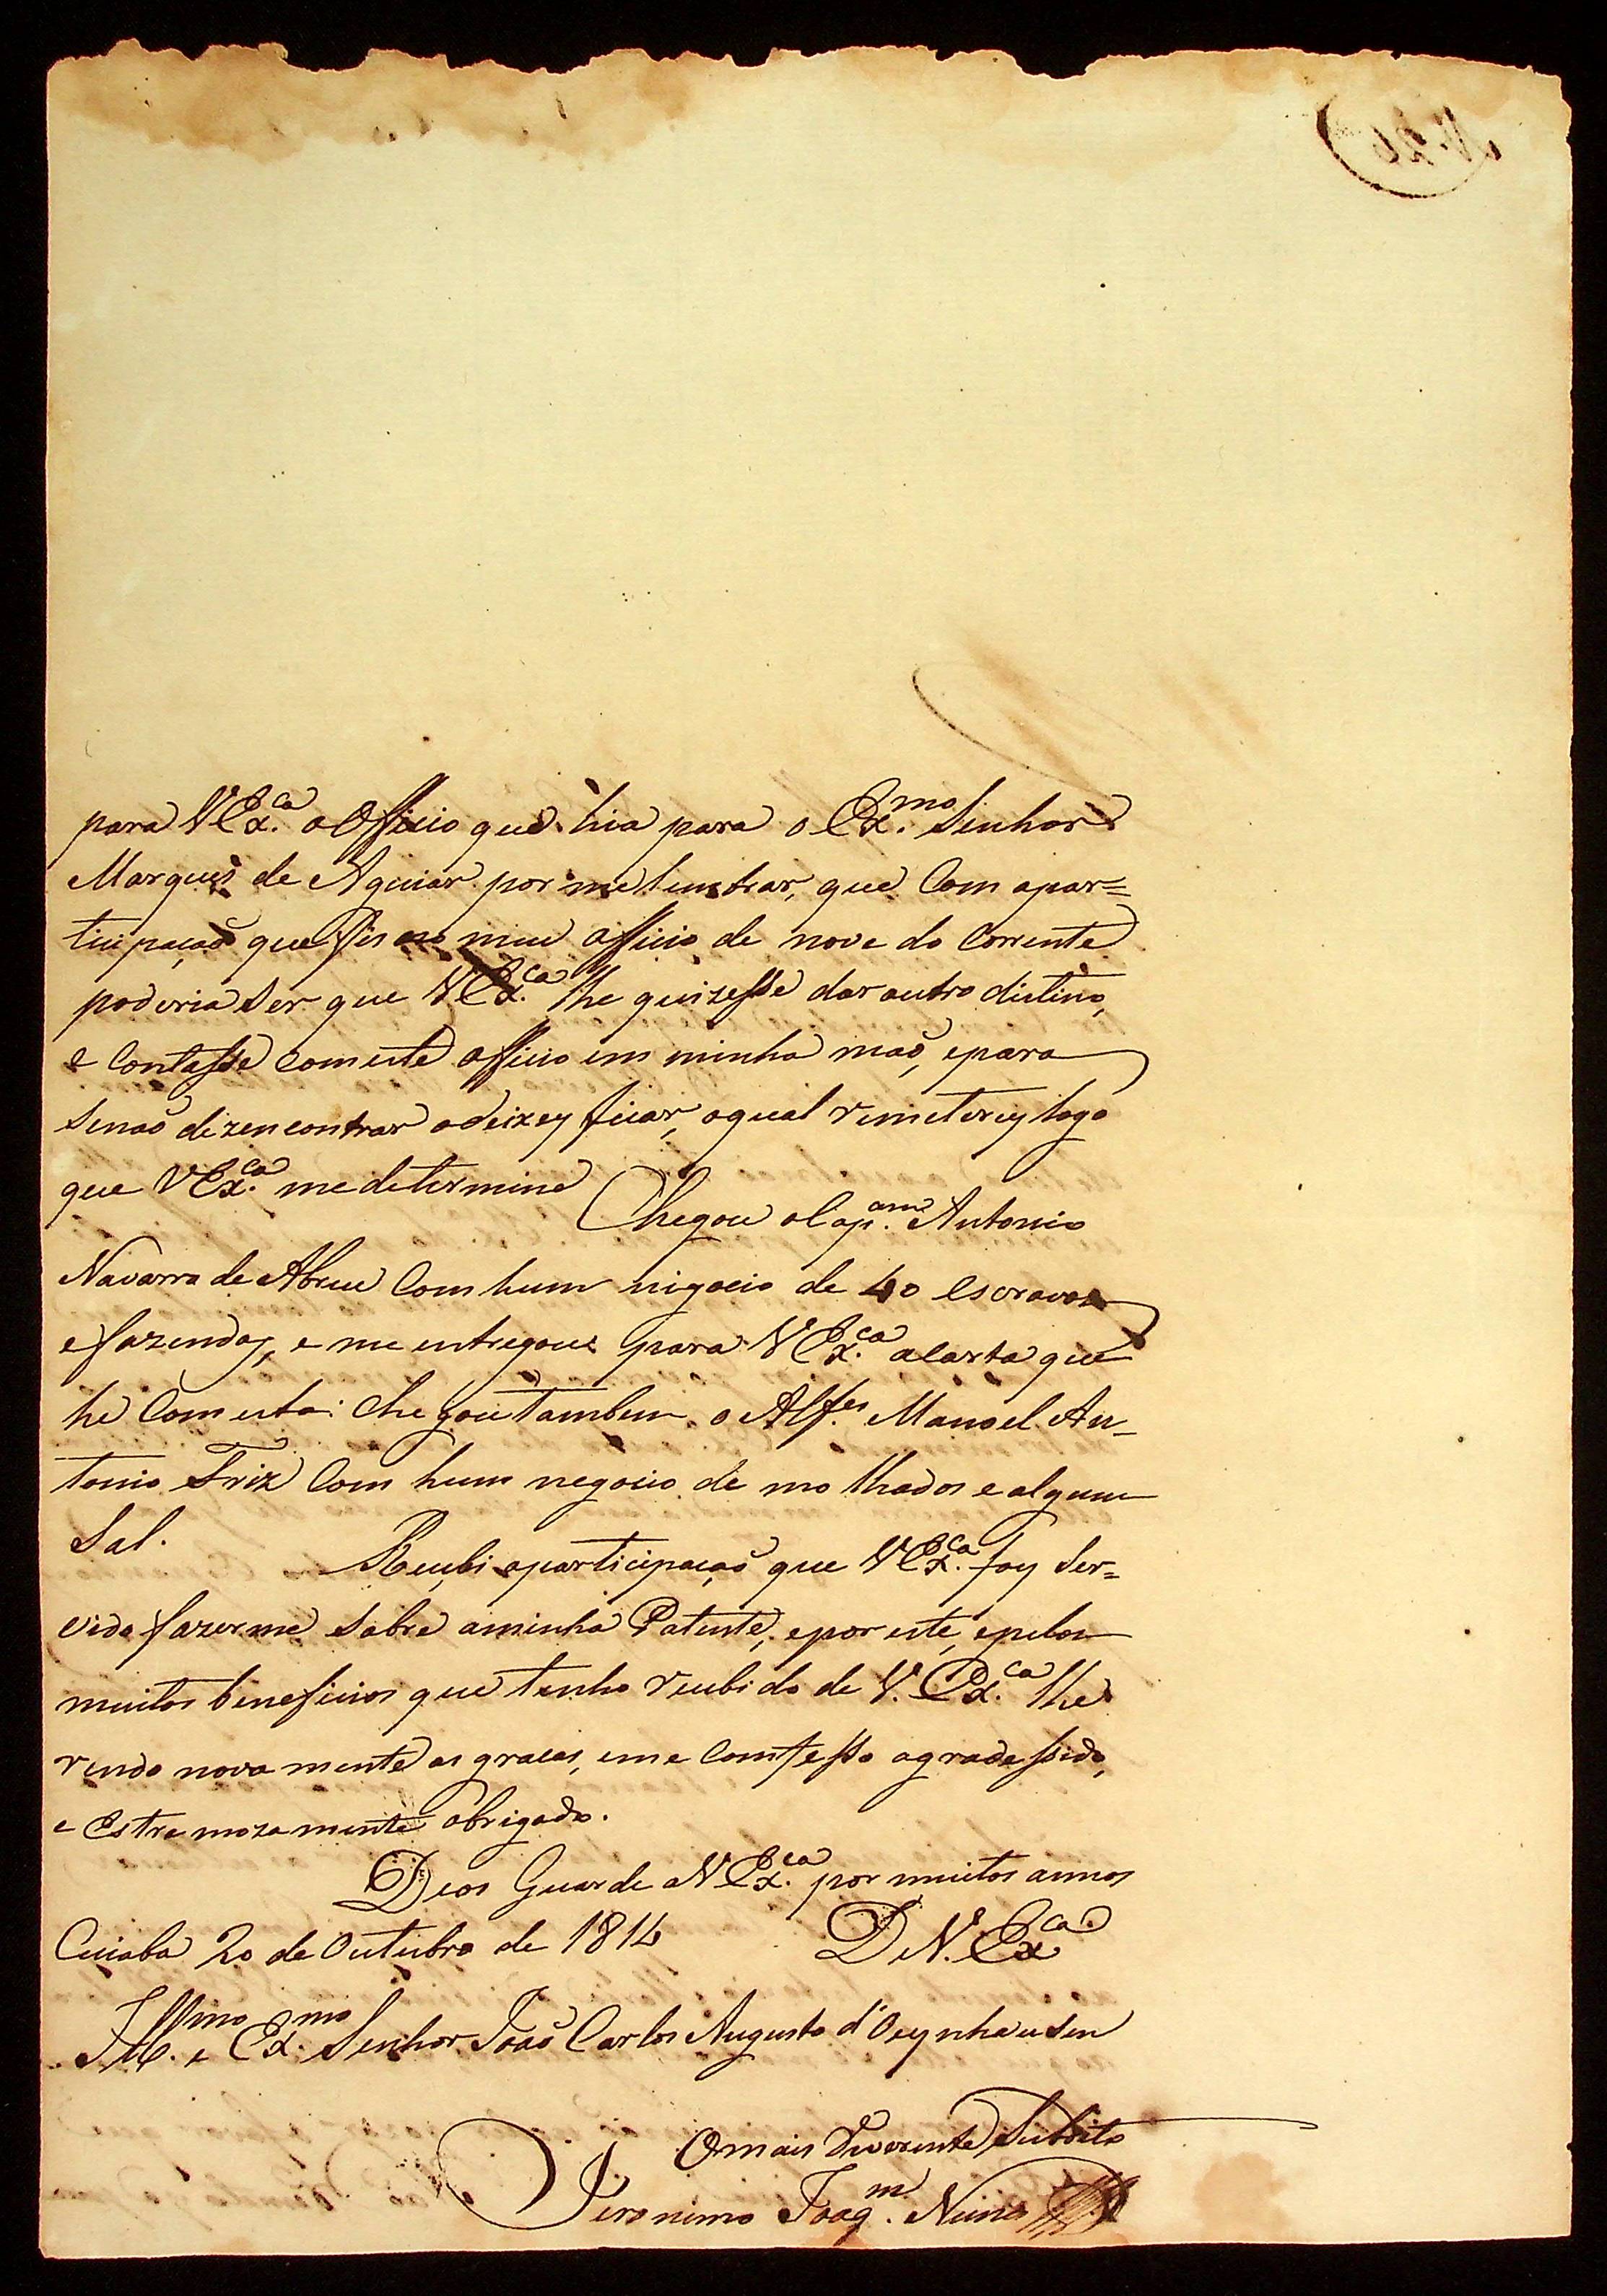 N. 26
para V Ex.ca o Officio que hia para o Ex.mo Senhor
Marques de Aguiar por me lembrar, que com apar=
ticipaçaõ que fis no meu officio de nove do Corrente
poderia ser que V Ex.ca lhe quizesse dar outro distino,
e Contasse com este officio em minha maõ, epara
senaõ dizencontrar odeixey ficar, oqual remeterey logo
que V Ex.ca me determine Chegou o Cap.am Antonio
Navarro de Abreu Com hum nigocio de 40 escravos
efazendas, e me entregou para V Ex.ca acarta que
he Com esta: chegou tambem o Alf.es Manoel An=
tonio Friz Com hum negocio de molhados e algum
Sal. Recebi aparticipaçaõ que V Ex.ca foy ser=
vido fazerme sobre aminha Patente, epor este, epelos
muitos beneficios que tenho recebido de V. Ex.ca lhe
rendo nova mente as gracas, eme Comfesso agradessido,
e estremozamente obrigado.
Deos Guarde a V Ex.ca por muitos annos
Cuiaba 20 de Outubro de 1814 D V. Ex.ca
Ill.mo e Ex.mo Senhor Joaõ Carlos Augusto d'Oeynhausen
Omais Reverente Subdito
Jeronimo Joaq.m Nunes